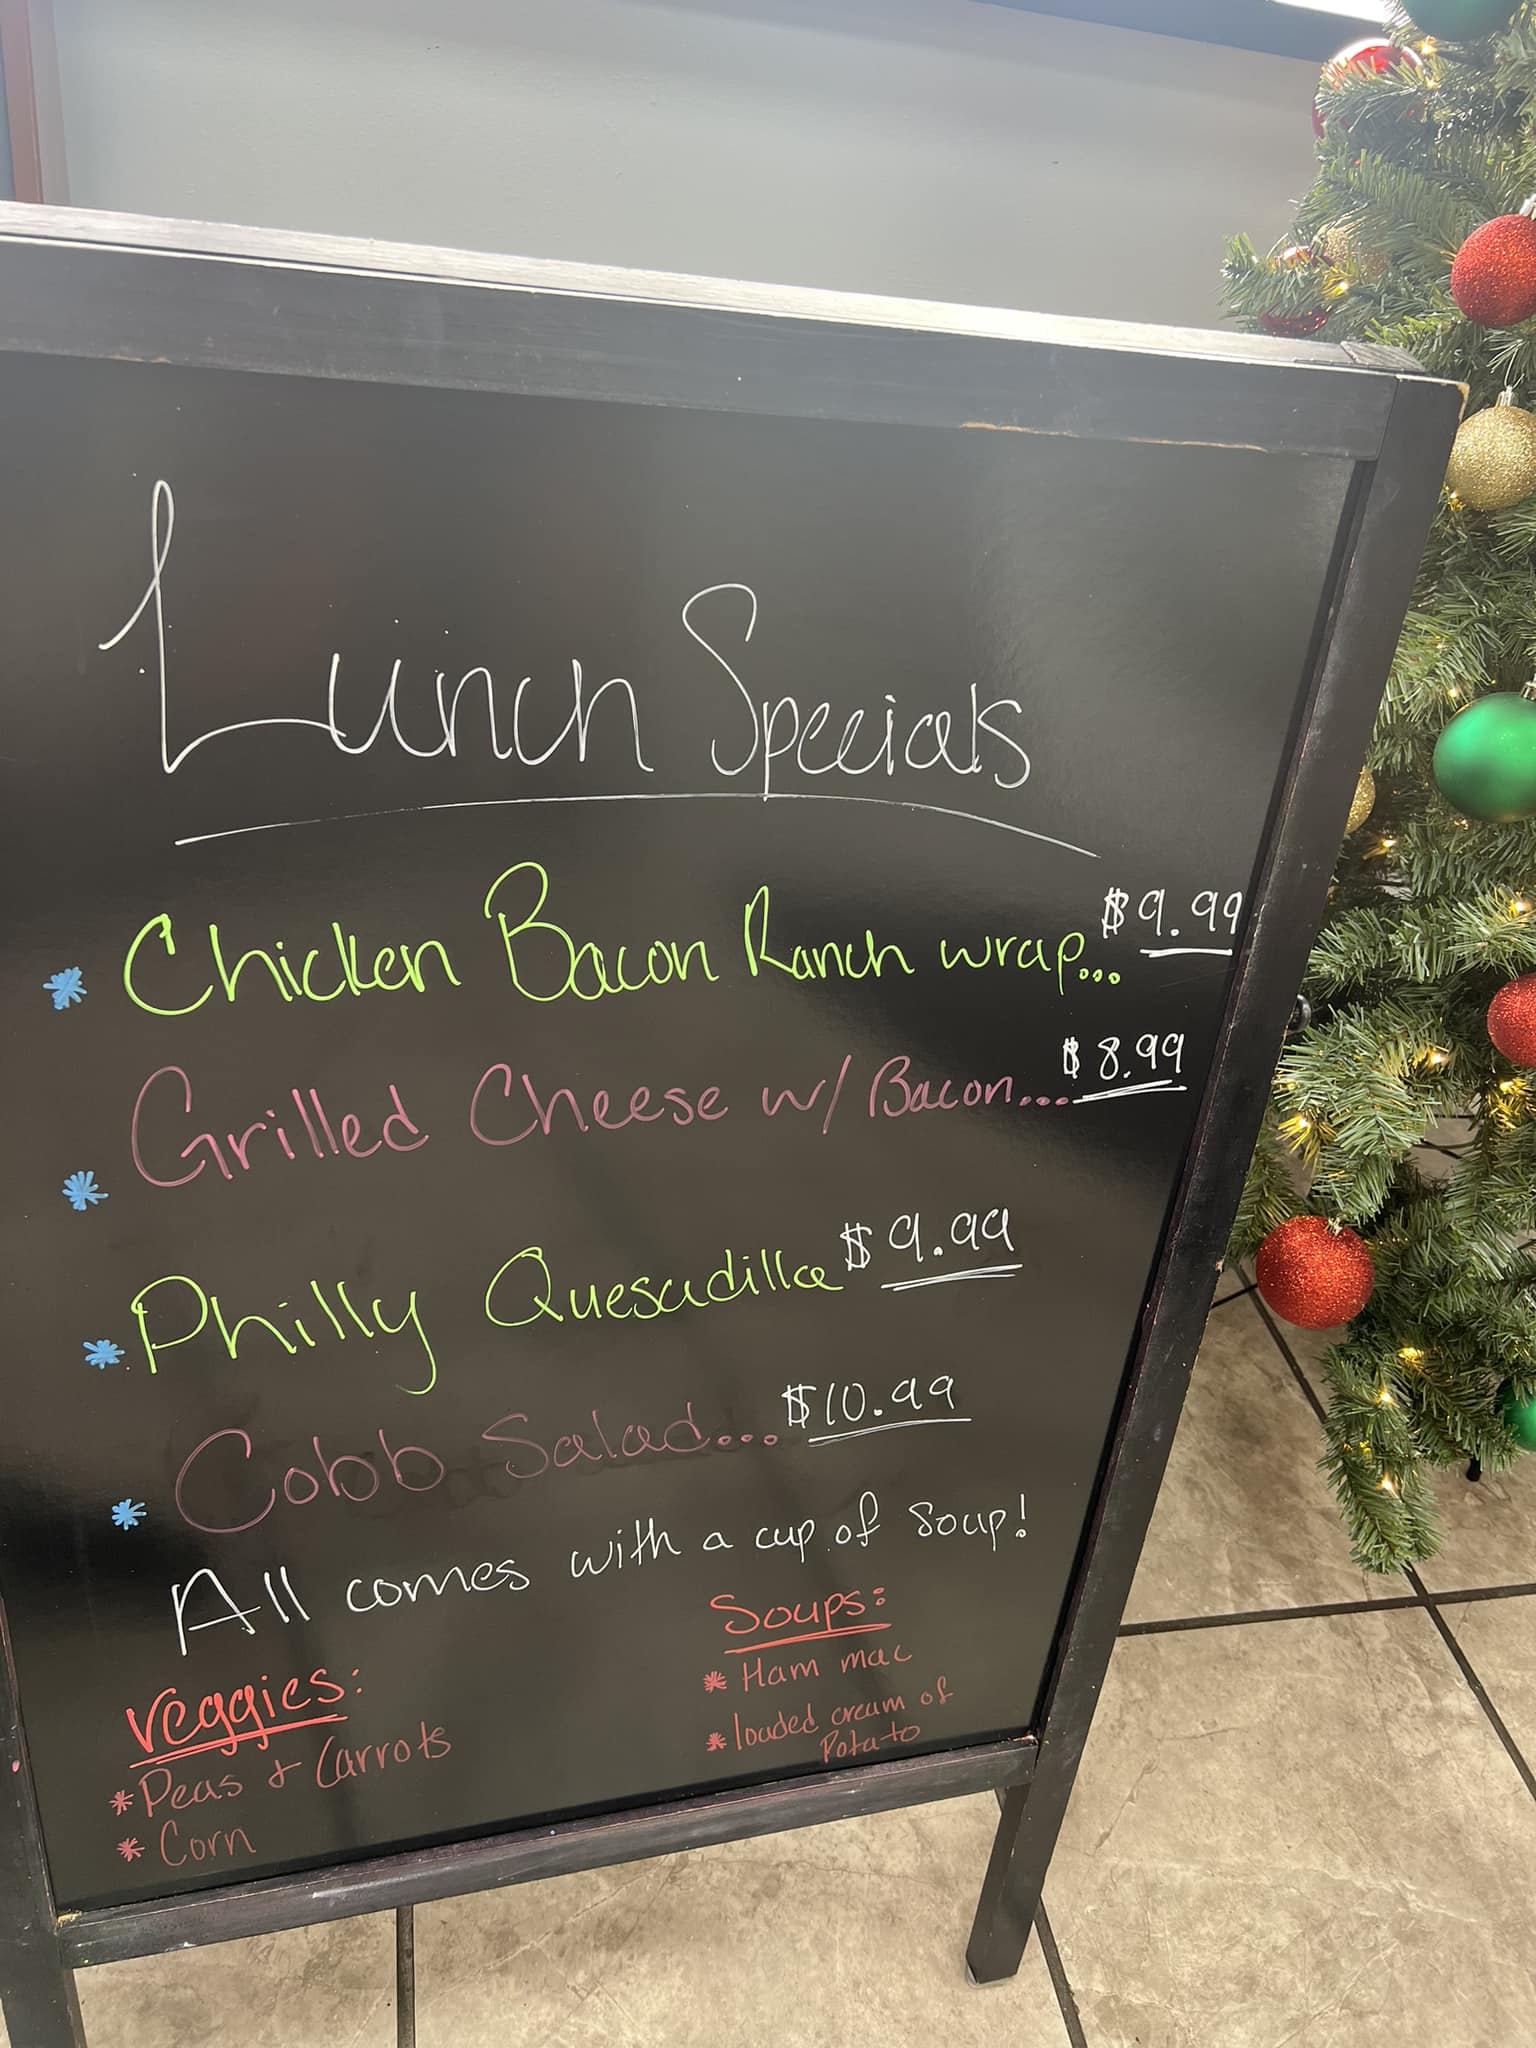 Lunch Specials
* Chicken Bacon Ranch wrap... $9.99
* Grilled Cheese w/ Bacon... $8.99
* Philly Quesadilla $9.99
* Cobb Salad... $10.99
All comes with a cup of soup!
Veggies:
* Peas & Carrots
* Corn
Soups:
* Ham mac
* loaded cream of
Potato